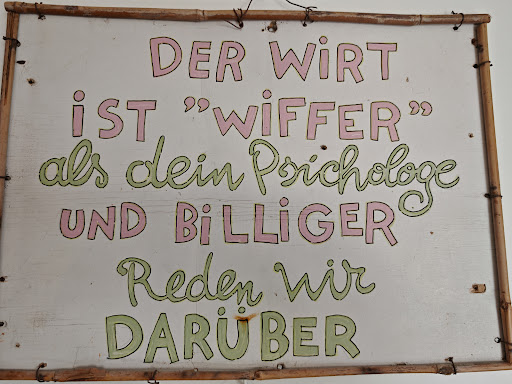 DER WiRT
iST "WiFFER"
als dein Psichologe
UND BiLLiGER
Reden wir
DARÜBER